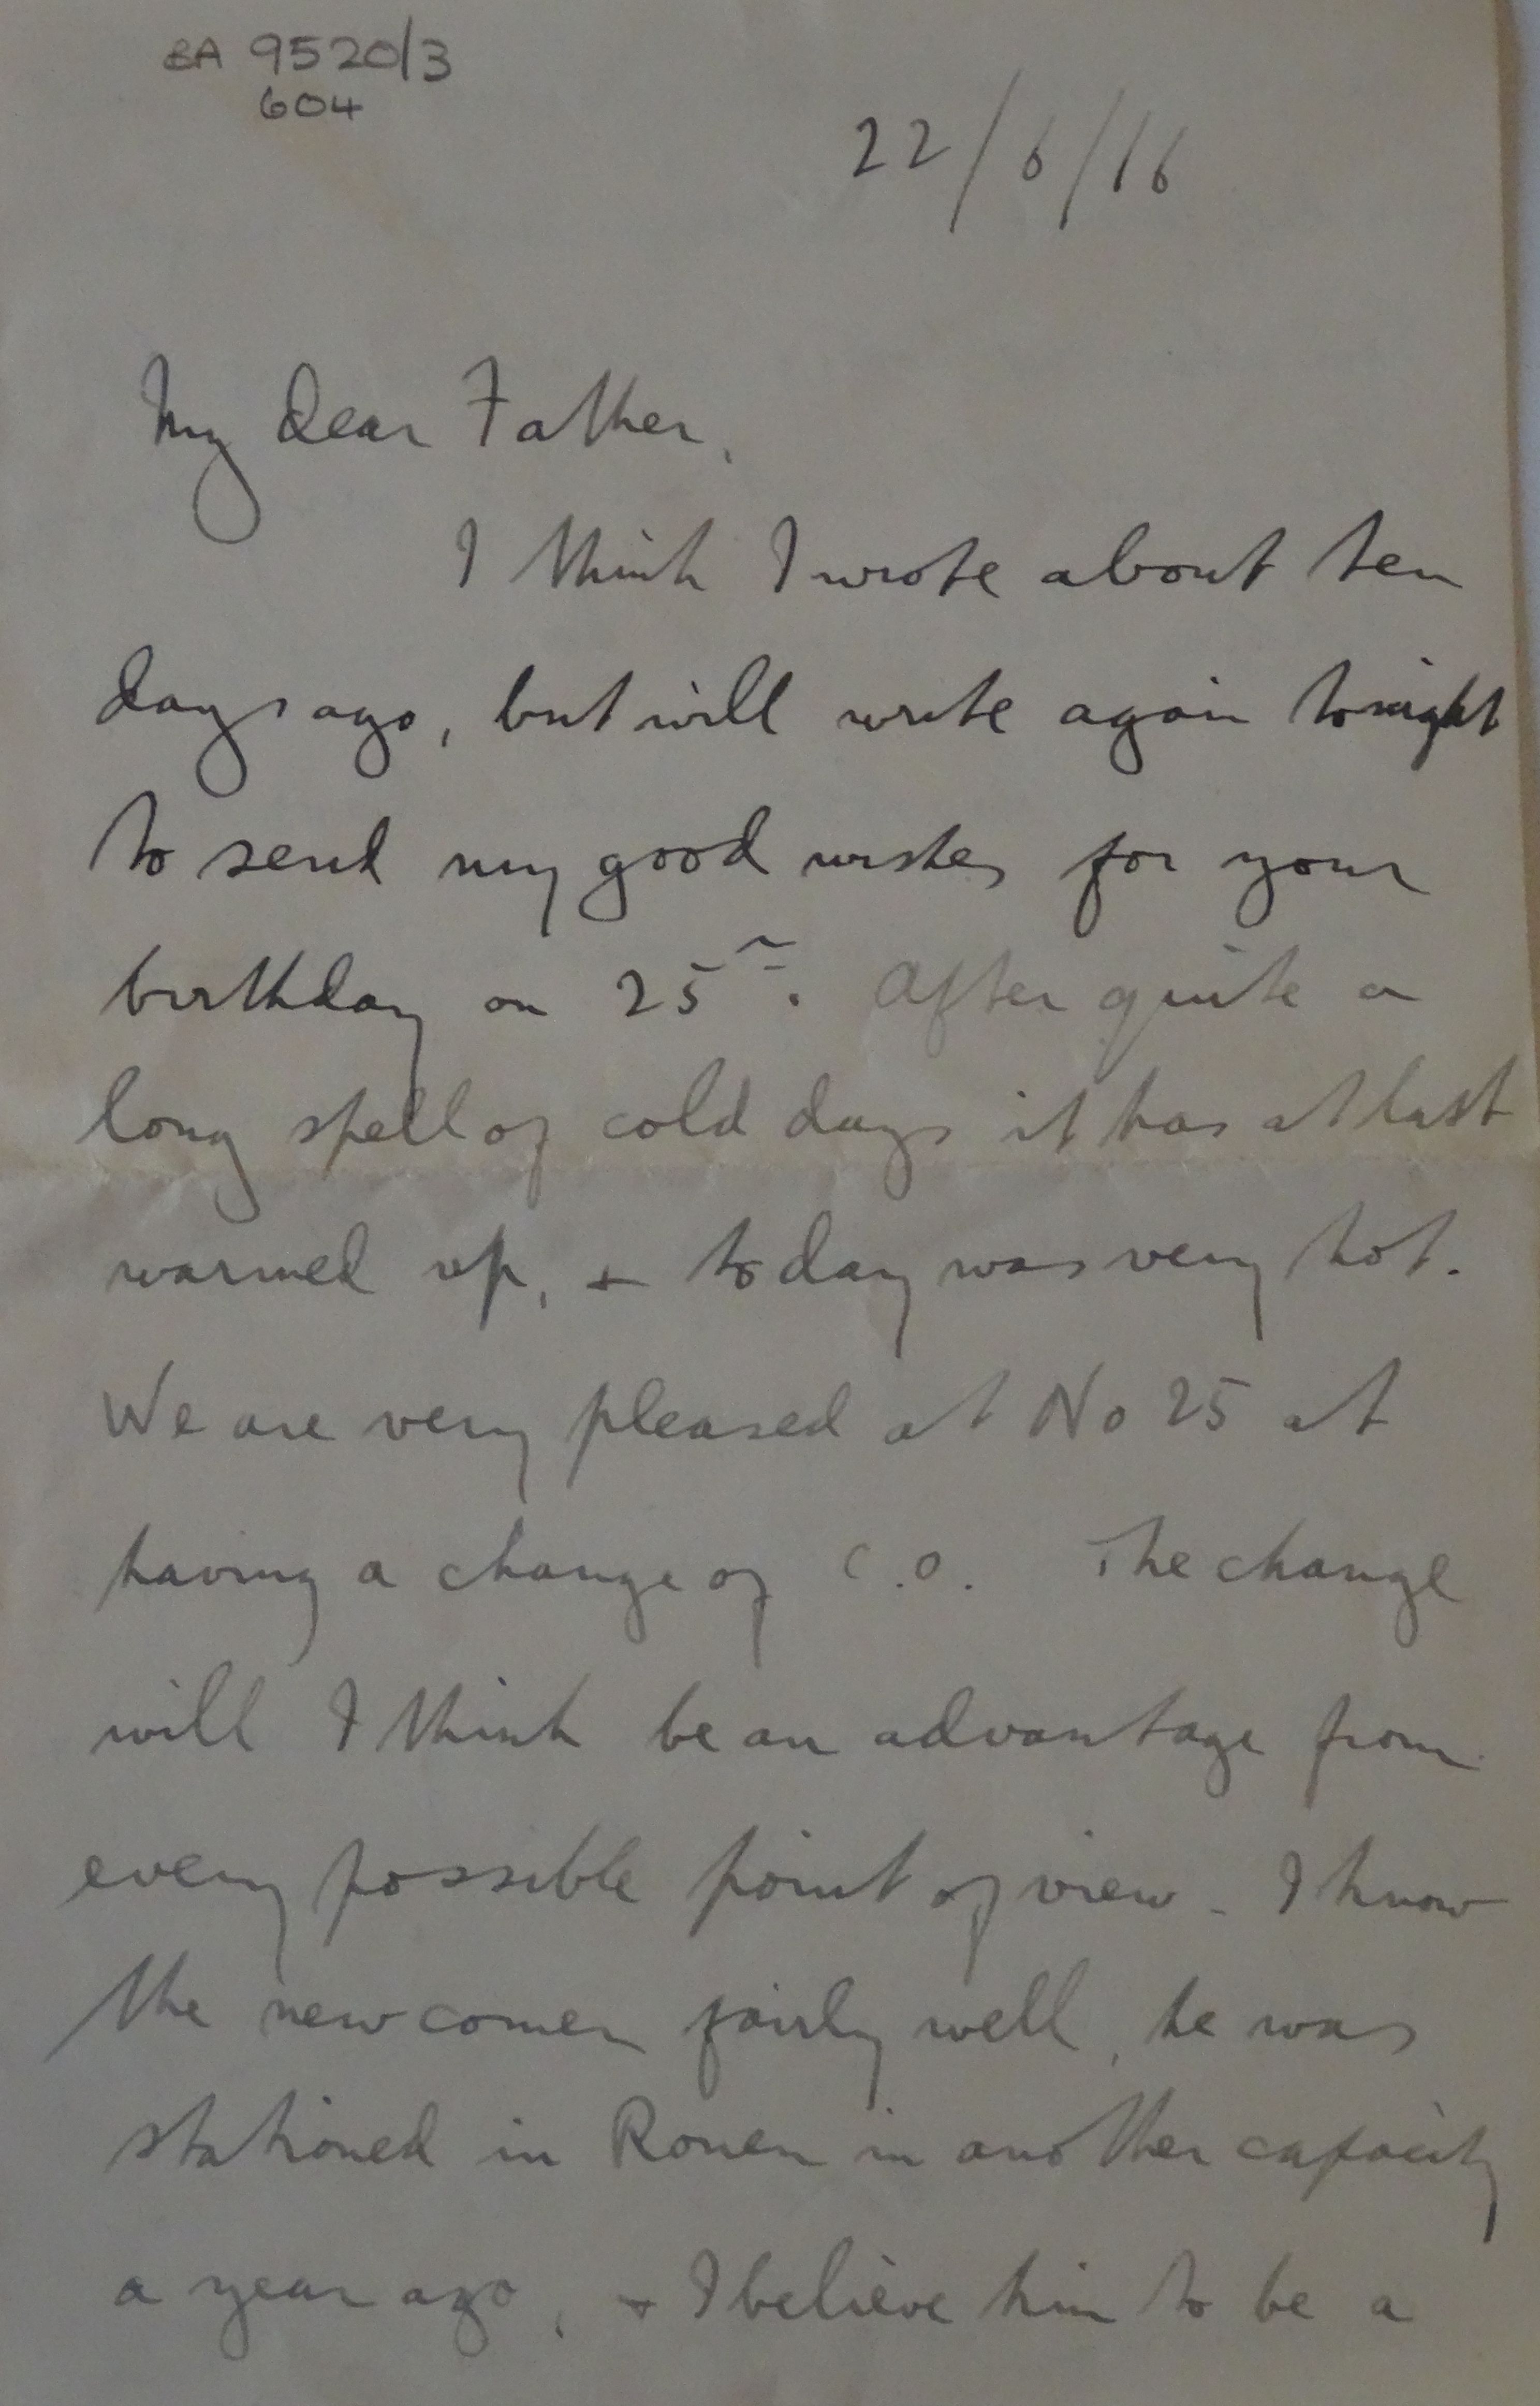 BA 9520/3
604
22/6/16
My dear Father,
I think I wrote about ten
days ago, but will write again tonight
to send my good wishes for your
birthday on 25th. After quite a
long spell of cold days it has at last
warmed up, + today was very hot.
We are very pleased at No 25 at
having a change of C.O. The change
will I think be an advantage from
every possible point of view. I know
the newcomer fairly well, he was
stationed in Rouen in another capacity
a year ago, + I believe him to be a